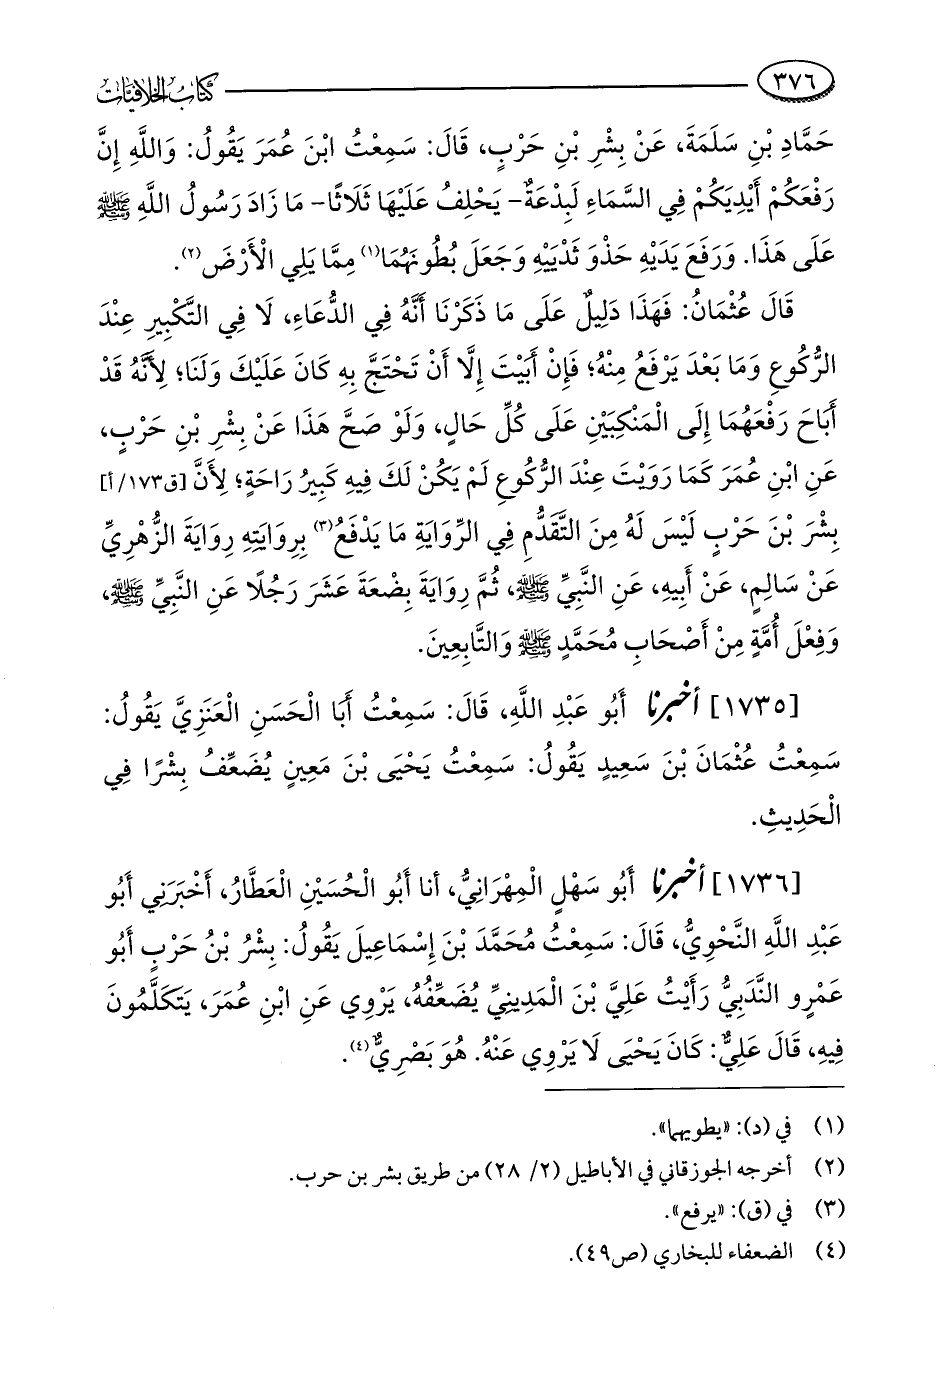 ٣٧٦ كتاب الخلافيات
حَمَّادِ بْنِ سَلَمَةَ، عَنْ بِشْرِ بْنِ حَرْبٍ، قَالَ: سَمِعْتُ ابْنَ عُمَرَ يَقُولُ: وَاللَّهِ إِنَّ
رَفْعَكُمْ أَيْدِيَكُمْ فِي السَّمَاءِ لَبِدْعَةٌ- يَحْلِفُ عَلَيْهَا ثَلَاثًا- مَا زَادَ رَسُولُ اللَّهِ ﷺ
عَلَى هَذَا. وَرَفَعَ يَدَيْهِ حَذْوَ ثَدْيَيْهِ وَجَعَلَ بُطُونَهُمَا(١) مِمَّا يَلِي الْأَرْضَ(٢).
قَالَ عُثْمَانُ: فَهَذَا دَلِيلٌ عَلَى مَا ذَكَرْنَا أَنَّهُ فِي الدُّعَاءِ، لَا فِي التَّكْبِيرِ عِنْدَ
الرُّكُوعِ وَمَا بَعْدَ يَرْفَعُ مِنْهُ؛ فَإِنْ أَبَيْتَ إِلَّا أَنْ تَحْتَجَّ بِهِ كَانَ عَلَيْكَ وَلَنَا؛ لِأَنَّهُ قَدْ
أَبَاحَ رَفْعَهُمَا إِلَى الْمَنْكِبَيْنِ عَلَى كُلِّ حَالٍ، وَلَوْ صَحَّ هَذَا عَنْ بِشْرِ بْنِ حَرْبٍ،
عَنِ ابْنِ عُمَرَ كَمَا رَوَيْتَ عِنْدَ الرُّكُوعِ لَمْ يَكُنْ لَكَ فِيهِ كَبِيرُ رَاحَةٍ؛ لِأَنَّ [ق١٧٣/أ]
بِشْرَ بْنَ حَرْبٍ لَيْسَ لَهُ مِنَ التَّقَدُّمِ فِي الرِّوَايَةِ مَا يَدْفَعُ(٣) بِرِوَايَتِهِ رِوَايَةَ الزُّهْرِيِّ
عَنْ سَالِمٍ، عَنْ أَبِيهِ، عَنِ النَّبِيِّ ﷺ، ثُمَّ رِوَايَةَ بِضْعَةَ عَشَرَ رَجُلًا عَنِ النَّبِيِّ ﷺ،
وَفِعْلَ أُمَّةٍ مِنْ أَصْحَابِ مُحَمَّدٍ ﷺ وَالتَّابِعِينَ.
[١٧٣٥] أخبرنا أَبُو عَبْدِ اللَّهِ، قَالَ: سَمِعْتُ أَبَا الْحَسَنِ الْعَنَزِيَّ يَقُولُ:
سَمِعْتُ عُثْمَانَ بْنَ سَعِيدٍ يَقُولُ: سَمِعْتُ يَحْيَى بْنَ مَعِينٍ يُضَعِّفُ بِشْرًا فِي
الْحَدِيثِ.
[١٧٣٦] أخبرنا أَبُو سَهْلٍ الْمِهْرَانِيُّ، أنا أَبُو الْحُسَيْنِ الْعَطَّارُ، أَخْبَرَنِي أَبُو
عَبْدِ اللَّهِ النَّحْوِيُّ، قَالَ: سَمِعْتُ مُحَمَّدَ بْنَ إِسْمَاعِيلَ يَقُولُ: بِشْرُ بْنُ حَرْبٍ أَبُو
عَمْرٍو النَّدَبِيُّ رَأَيْتُ عَلِيَّ بْنَ الْمَدِينِيِّ يُضَعِّفُهُ، يَرْوِي عَنِ ابْنِ عُمَرَ، يَتَكَلَّمُونَ
فِيهِ، قَالَ عَلِيٌّ: كَانَ يَحْيَى لَا يَرْوِي عَنْهُ. هُوَ بَصْرِيٌّ(٤).
(١) في (د): «يطويهما».
(٢) أخرجه الجوزقاني في الأباطيل (٢/ ٢٨) من طريق بشر بن حرب.
(٣) في (ق): «يرفع».
(٤) الضعفاء للبخاري (ص٤٩).